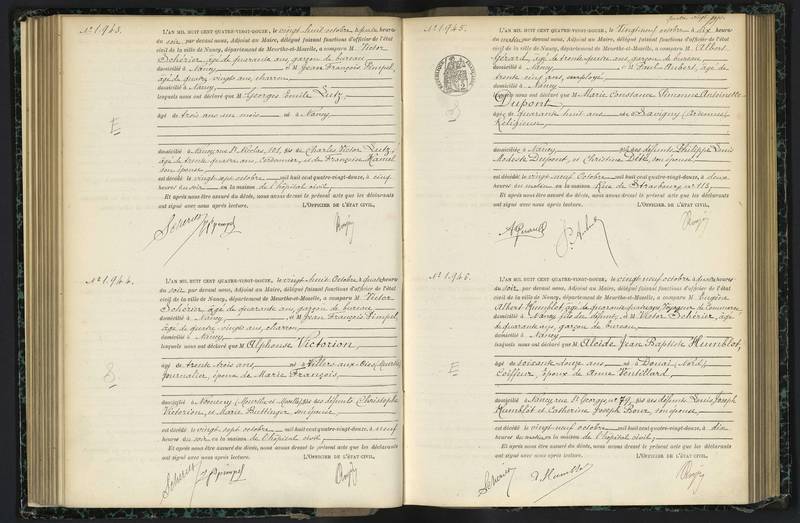 No 1.943.
L'AN MIL HUIT CENT QUATRE-VINGT-DOUZE, le vingt huit octobre à quatre heures
du soir, par devant nous, Adjoint au Maire, délégué faisant fonctions d'officier de l'état
civil de la ville de Nancy, département de Meurthe-et-Moselle, a comparu M. Victor
Schérier, âgé de quarante ans, garçon de bureau
domicilié à Nancy, et M. Jean François Pimpel,
âgé de quatre vingts ans, charron,
domicilié à Nancy,
lesquels nous ont déclaré que M. Georges Emile Lutz,
E
âgé de trois ans un mois né à Nancy
domicilié à Nancy, rue St Nicolas, 101, fils de Charles Victor Lutz,
âgé de trente quatre ans, Cordonnier, et de Françoise Hamel
son épouse
est décédé le vingt-sept octobre mil huit cent quatre-vingt-douze, à cinq
heures du soir, en la maison de l'hôpital civil,
Et après nous être assuré du décès, nous avons dressé le présent acte que les déclarants
ont signé avec nous après lecture. L'OFFICIER DE L'ÉTAT CIVIL,
Scherier
No 1.944.
L'AN MIL HUIT CENT QUATRE-VINGT-DOUZE, le vingt huit Octobre à quatre heures
du soir, par devant nous, Adjoint au Maire, délégué faisant fonctions d'officier de l'état
civil de la ville de Nancy, département de Meurthe-et-Moselle, a comparu M. Victor
Schérier, âgé de quarante ans, garçon de bureau
domicilié à Nancy, et M. Jean François Pimpel,
âgé de quatre vingts ans, charron,
domicilié à Nancy,
lesquels nous ont déclaré que M. Alphonse Victorion,
âgé de trente trois ans, né à Villers aux Oies (Meurthe)
journalier, époux de Marie François,
domicilié à Nomeny (Meurthe et Moselle), fils des défunts Christophe
Victorion, et Marie Bettinger son épouse
est décédé le vingt-sept octobre mil huit cent quatre-vingt-douze, à neuf
heures du soir, en la maison de l'hôpital civil,
Et après nous être assuré du décès, nous avons dressé le présent acte que les déclarants
ont signé avec nous après lecture. L'OFFICIER DE L'ÉTAT CIVIL,
Scherier
No 1.945.
L'AN MIL HUIT CENT QUATRE-VINGT-DOUZE, le Vingt neuf octobre à dix heures
du matin, par devant nous, Adjoint au Maire, délégué faisant fonctions d'officier de l'état
civil de la ville de Nancy, département de Meurthe-et-Moselle, a comparu M. Albert
Gérard, âgé de trente quatre ans, garçon de bureau,
domicilié à Nancy, et M. Paul Aubert, âgé de
trente cinq ans, employé
domicilié à Nancy
lesquels nous ont déclaré que M. Marie Constance Simonne Antoinette
Dupont,
âgée de quarante huit ans née à Savigny (Ardennes)
Religieuse,
domiciliée à Nancy, fille des défunts Philippe Louis
Modeste Dupont, et Christine son épouse
est décédée le vingt-neuf Octobre mil huit cent quatre-vingt-douze, à deux
heures du matin, en la maison Rue de Strasbourg no 113,
Et après nous être assuré du décès, nous avons dressé le présent acte que les déclarants
ont signé avec nous après lecture. L'OFFICIER DE L'ÉTAT CIVIL,
A Gérard
P. Aubert
No 1.946.
L'AN MIL HUIT CENT QUATRE-VINGT-DOUZE, le vingt neuf octobre à heures
du soir, par devant nous, Adjoint au Maire, délégué faisant fonctions d'officier de l'état
civil de la ville de Nancy, département de Meurthe-et-Moselle, a comparu M. Eugène
Albert Humblot, âgé de quarante quatre ans, Voyageur de Commerce
domicilié à Nancy, fils du défunt, et M. Victor Schérier, âgé
de quarante ans, garçon de bureau,
domicilié à Nancy
lesquels nous ont déclaré que M. Alcide Jean Baptiste Humblot,
E
âgé de soixante douze ans né à Douai (Nord)
Coiffeur époux de Anne Ventillard
domicilié à Nancy, rue St Georges, no 79, fils des défunts Louis Joseph
Humblot et Catherine Joseph son épouse
est décédé le vingt-neuf octobre mil huit cent quatre-vingt-douze, à dix
heures du matin, en la maison de l'hôpital civil,
Et après nous être assuré du décès, nous avons dressé le présent acte que les déclarants
ont signé avec nous après lecture. L'OFFICIER DE L'ÉTAT CIVIL,
Scherier
Humblot